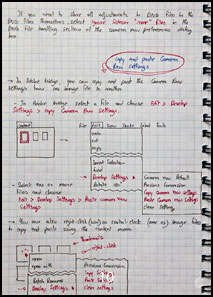 If you want to store all adjustments to DNG files in the
DNG files themselves, select ignore sidecar ".xmp" files in the
DNG file handling section of the camera raw preferences dialog
box.
Copy and paste Camera
Raw settings
→ In Adobe Bridge you can copy and paste the Camera Raw
settings from one image file to another
• In Adobe Bridge select a file and choose Edit > Develop
Settings > Copy Camera Raw Settings.
File Edit View Stacks Label Tools
undo
cut
copy
Invert Selection
Develop Settings
Rotate 180°
Camera Raw Defaults
Previous Conversion
Copy Camera Raw Settings
Paste Camera Raw Settings
Clear Settings
• Select one or more
files and choose
Edit > Develop Settings > Paste Camera Raw
Settings
You can also right click (win) or control click (mac os) image files
to copy and paste using the context menu
thumbnails
right-click
open
open with
Batch Rename
Develop Settings
Previous Conversion
Copy Settings
Paste Settings
Clear Settings